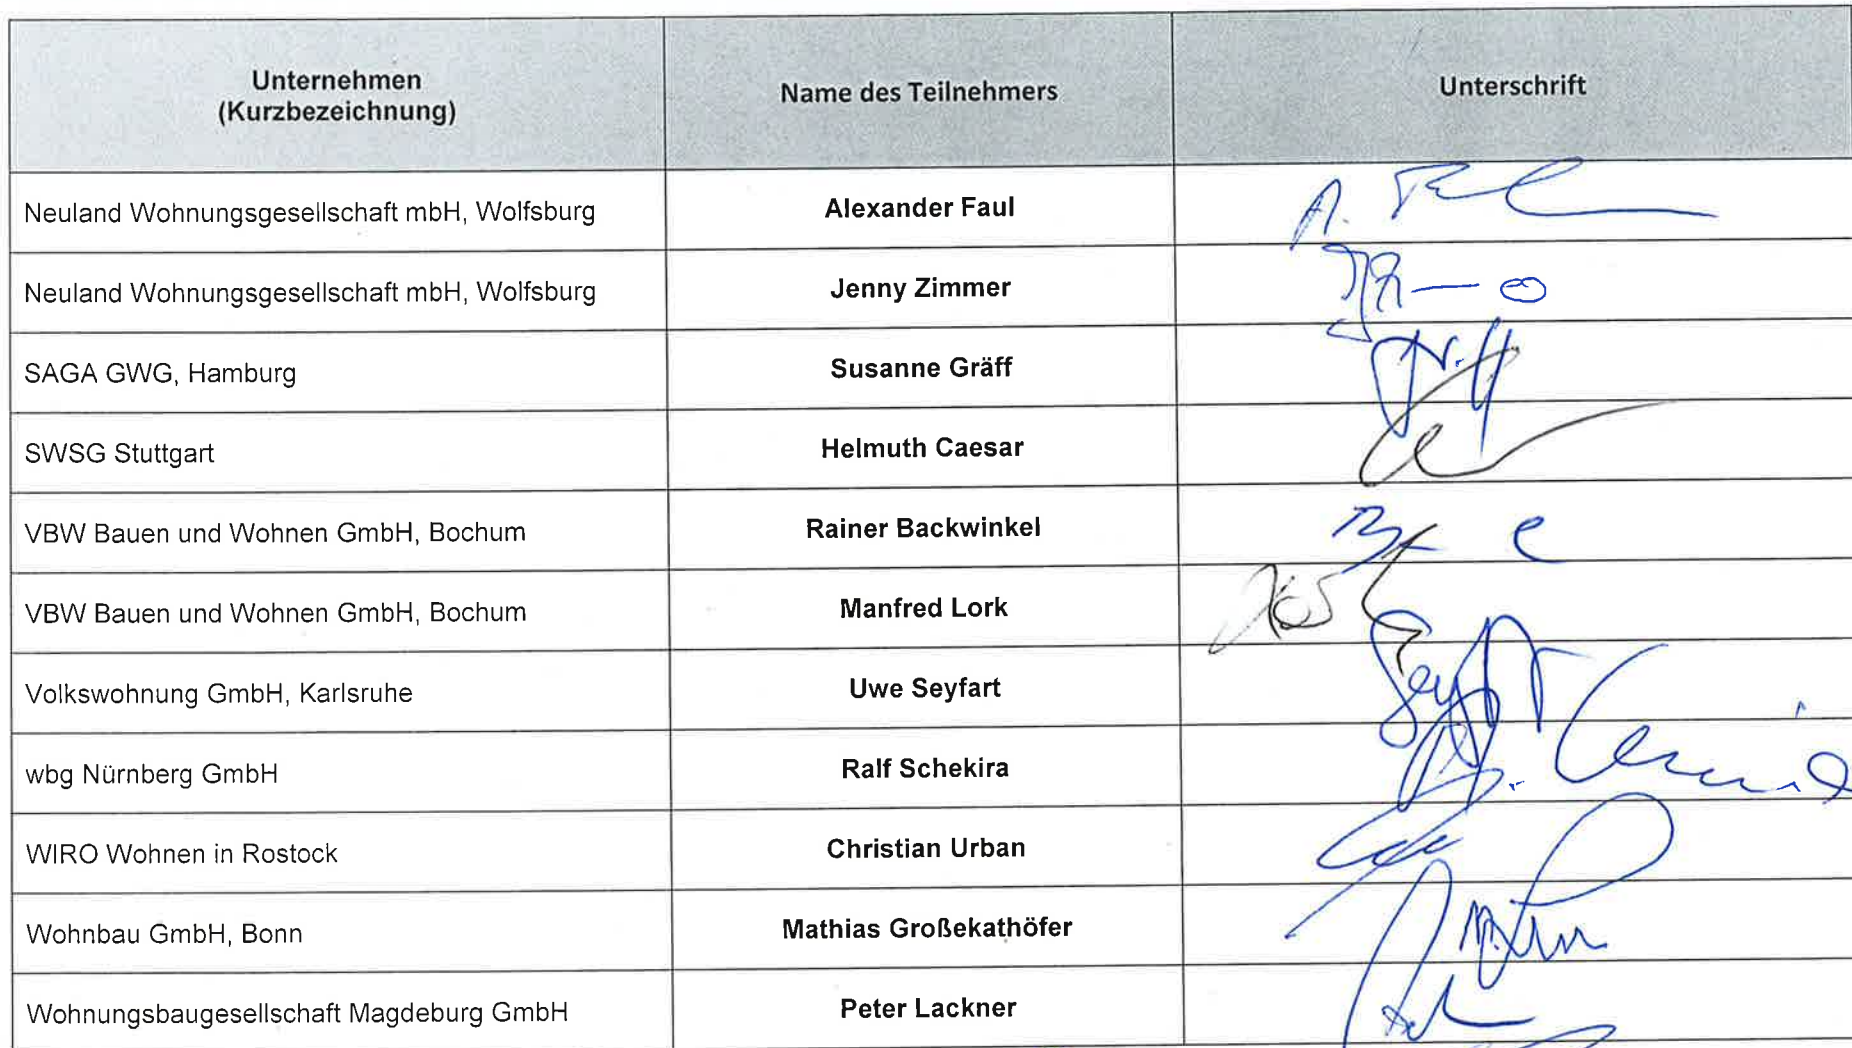 Unternehmen
(Kurzbezeichnung)
Name des Teilnehmers
Unterschrift
Neuland Wohnungsgesellschaft mbH, Wolfsburg
Alexander Faul
Neuland Wohnungsgesellschaft mbH, Wolfsburg
Jenny Zimmer
SAGA GWG, Hamburg
Susanne Gräff
SWSG Stuttgart
Helmuth Caesar
VBW Bauen und Wohnen GmbH, Bochum
Rainer Backwinkel
VBW Bauen und Wohnen GmbH, Bochum
Manfred Lork
Volkswohnung GmbH, Karlsruhe
Uwe Seyfart
wbg Nürnberg GmbH
Ralf Schekira
WIRO Wohnen in Rostock
Christian Urban
Wohnbau GmbH, Bonn
Mathias Großekathöfer
Wohnungsbaugesellschaft Magdeburg GmbH
Peter Lackner